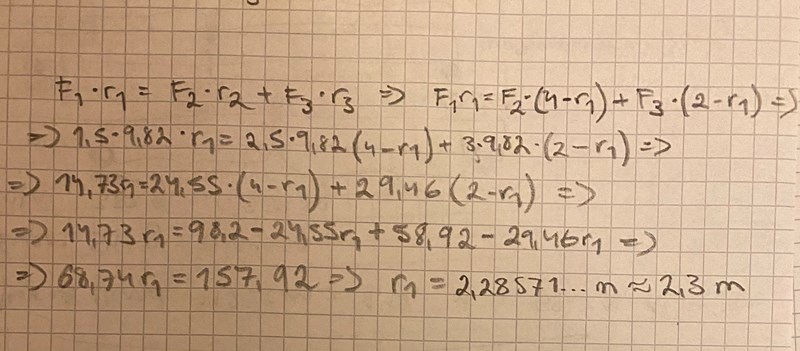 F₁·r₁ = F₂·r₂ + F₃·r₃ => F₁r₁=F₂·(4-r₁)+F₃·(2-r₁)=>
=> 1,5·9,82·r₁=2,5·9,82(4-r₁)+3·9,82·(2-r₁)=>
=> 14,73r₁=24,55·(4-r₁)+29,46(2-r₁) =>
=> 14,73r₁=98,2-24,55r₁+58,92-29,46r₁ =>
=> 68,74r₁=157,92 => r₁ = 2,28571... m ≈ 2,3 m